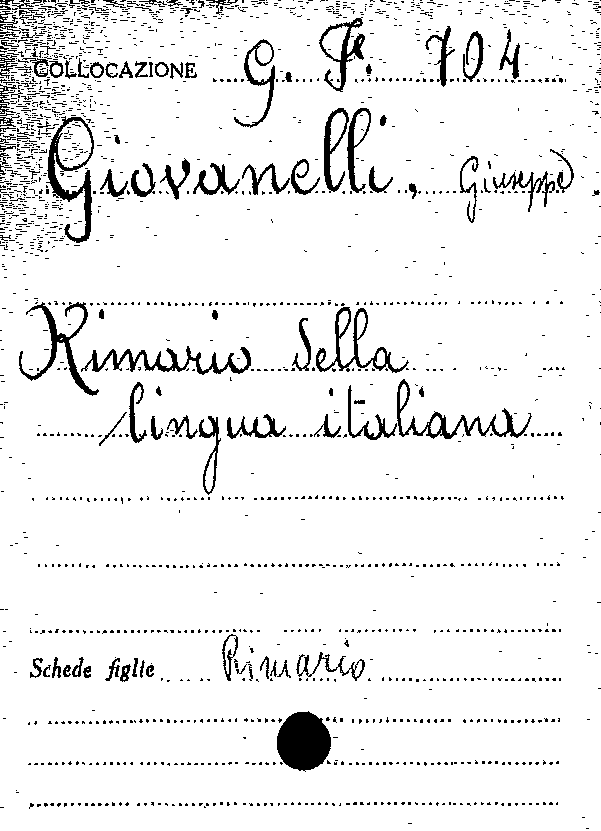 COLLOCAZIONE G. F. 704
Giovanelli, Giuseppe
Rimario della
lingua italiana
Schede figlie Rimario